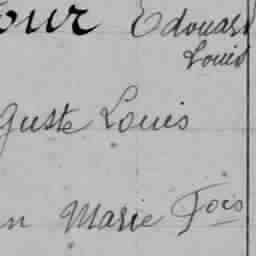 our Edouard
Louis
guste Louis
n Marie Fois